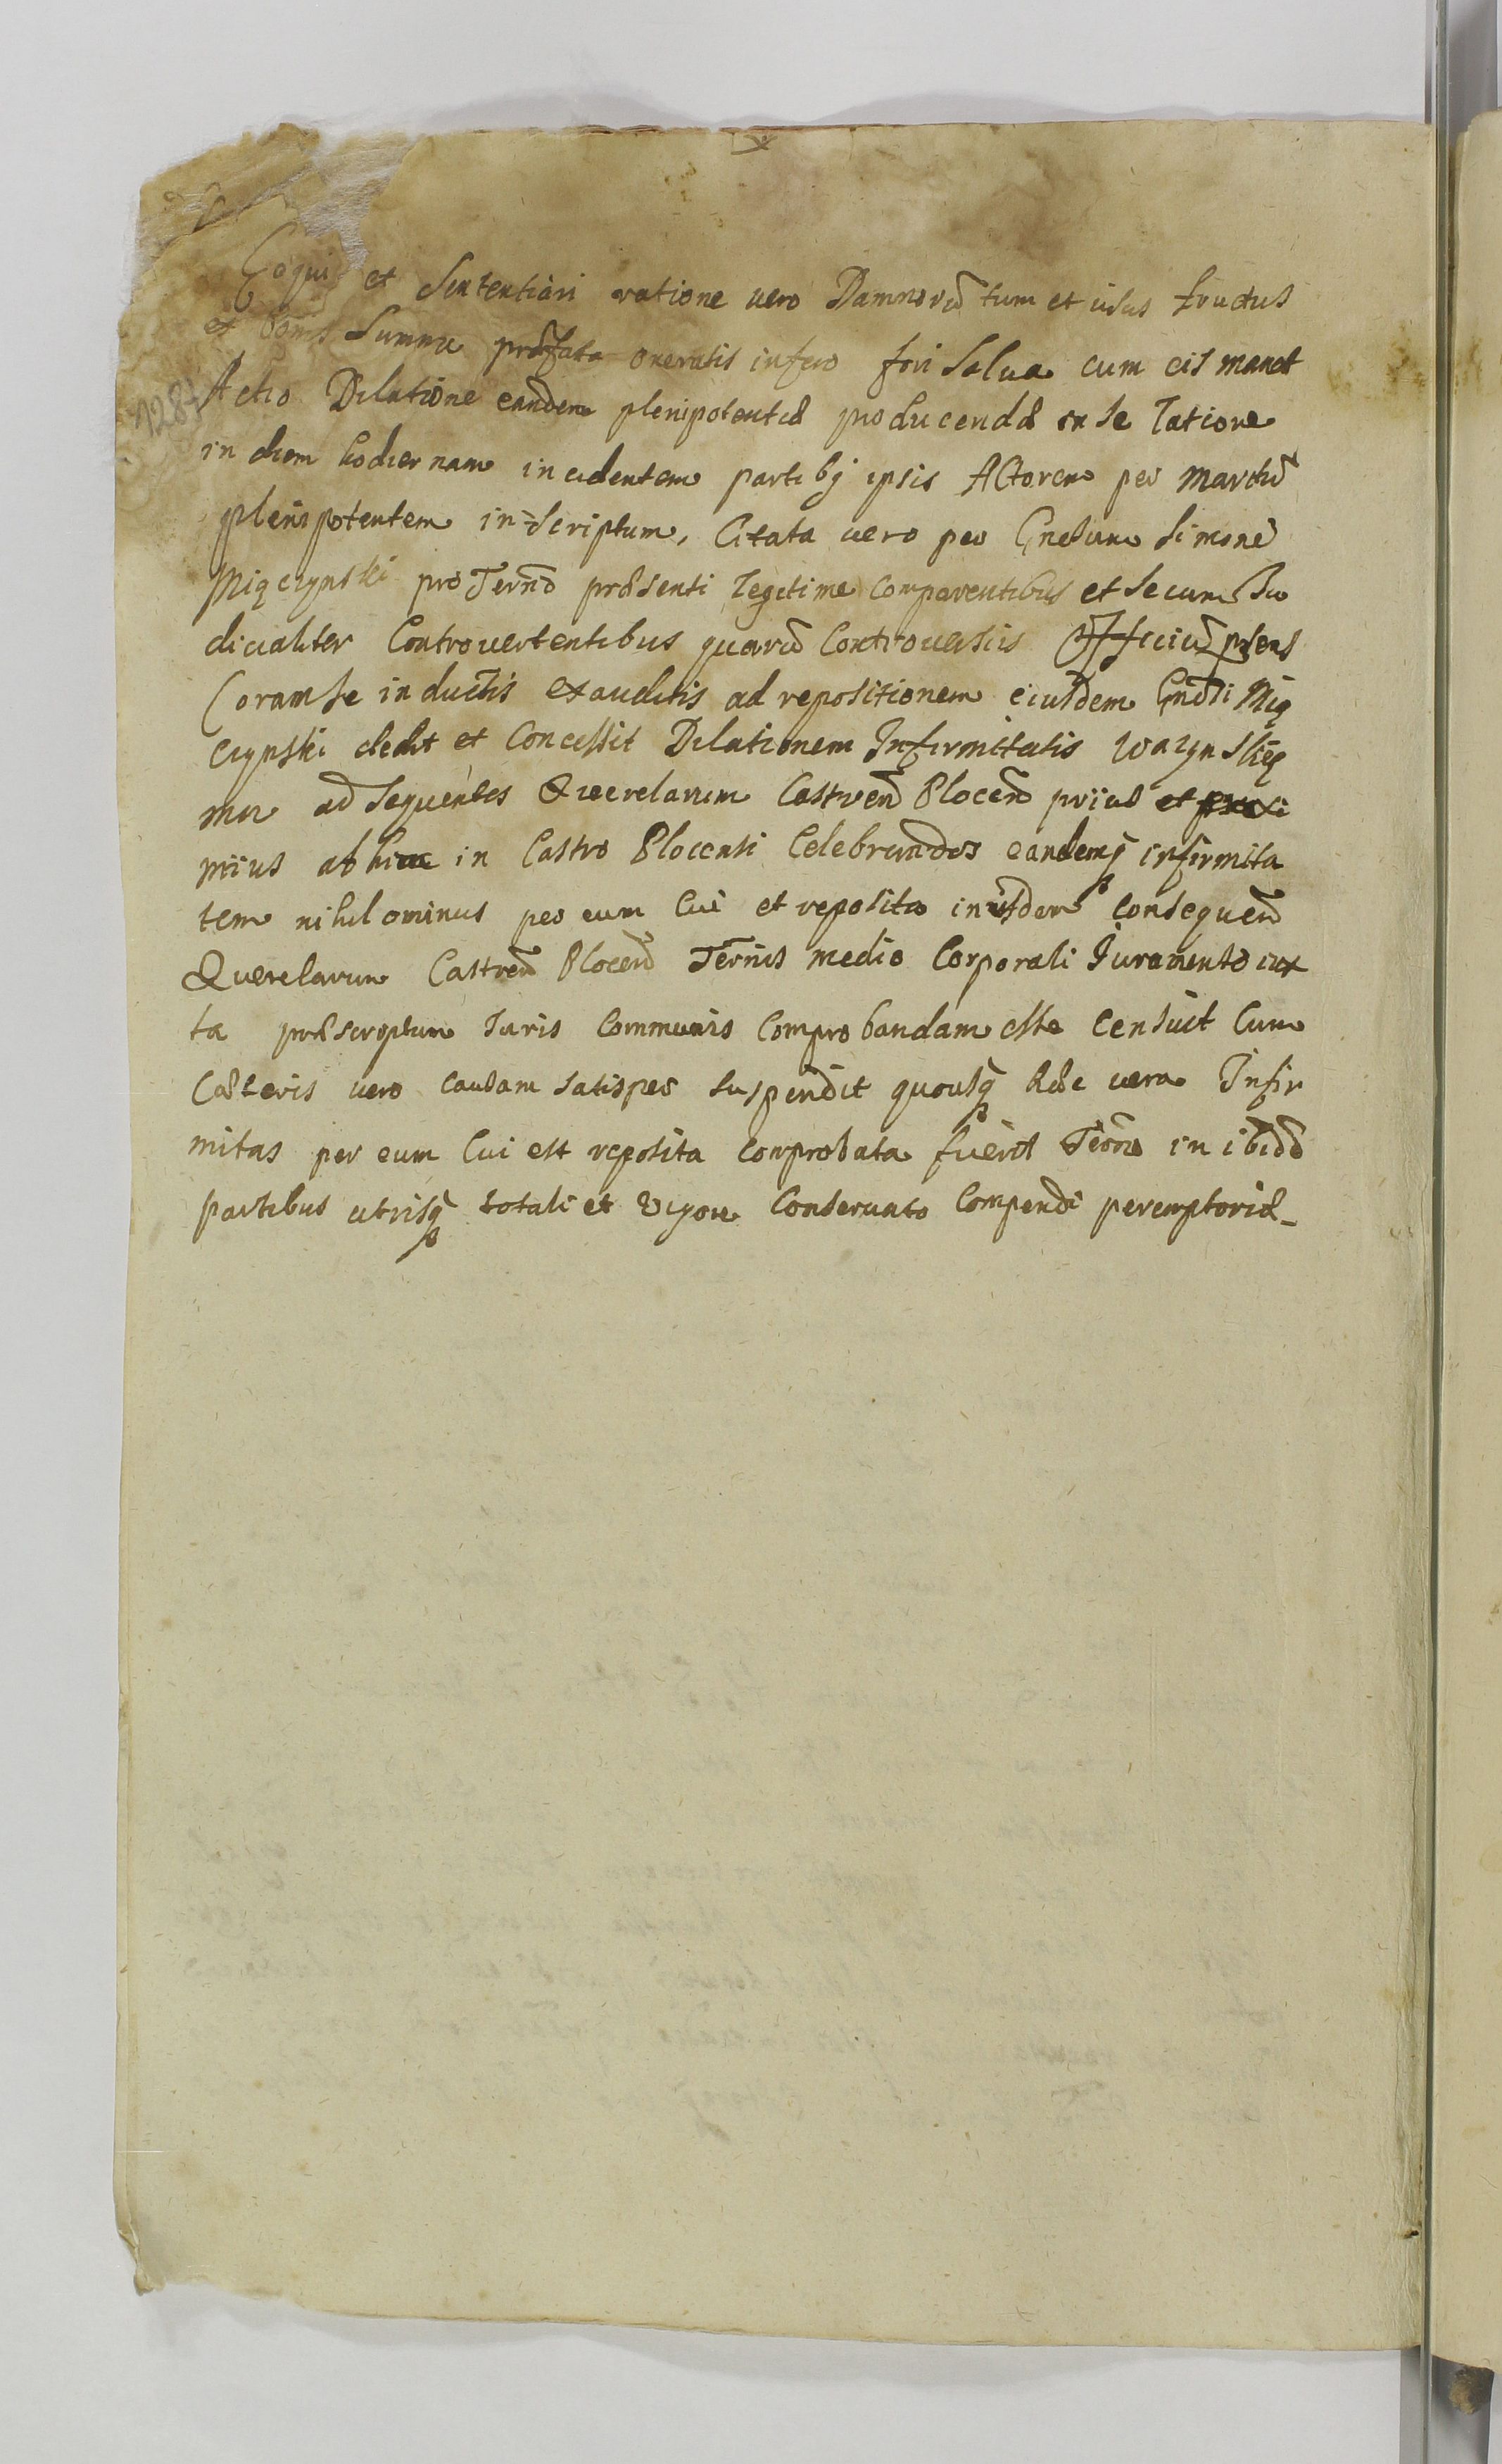 Loqui et Sententiari ratione vero Damnorũ tum et usus fructus
et bonis Summa præfata oneratis in foro fori salva cum eis manet
128
Actio Dilatione eandem plenipotentiæ producendæ ex se latione
in diem hodiernam incidentem partibq ipsis Actorem per Martiũ
plenipotentem in-scriptum, Citata vero per Gnosum Simonẽ
Miączynski pro Termõ præsenti legitime Comparentibus et secum Iu
dicialiter Controvertentibus quarũ Controversiis Officiũ præns
Coram se inductis exauditis ad repositionem eiusdem Gnosi Mią
czynski dedit et Concessit Dilationem Infirmitatis
ad sequentes Querelarum Castreñ Ploceñ prius et proxi
mius ab hinc in Castro Plocensi Celebrandos eandemq infirmita
tem nihilominus per eum Cui et reposita in iisdem consequeñ
Querelarum Castreñ Ploceñ Terñis medio Corporali Iuramento iux
ta præscriptum Iuris Communis Comprobandam esse Censuit Cum
Cæteris vero Causam satisper suspendit quousq hæc vera Infir
mitas per eum Cui est reposita comprobata fuerit Termõ in ibidẽ
partibus utrisq totali et Vigore Conservato Compendi peremptoriæ_